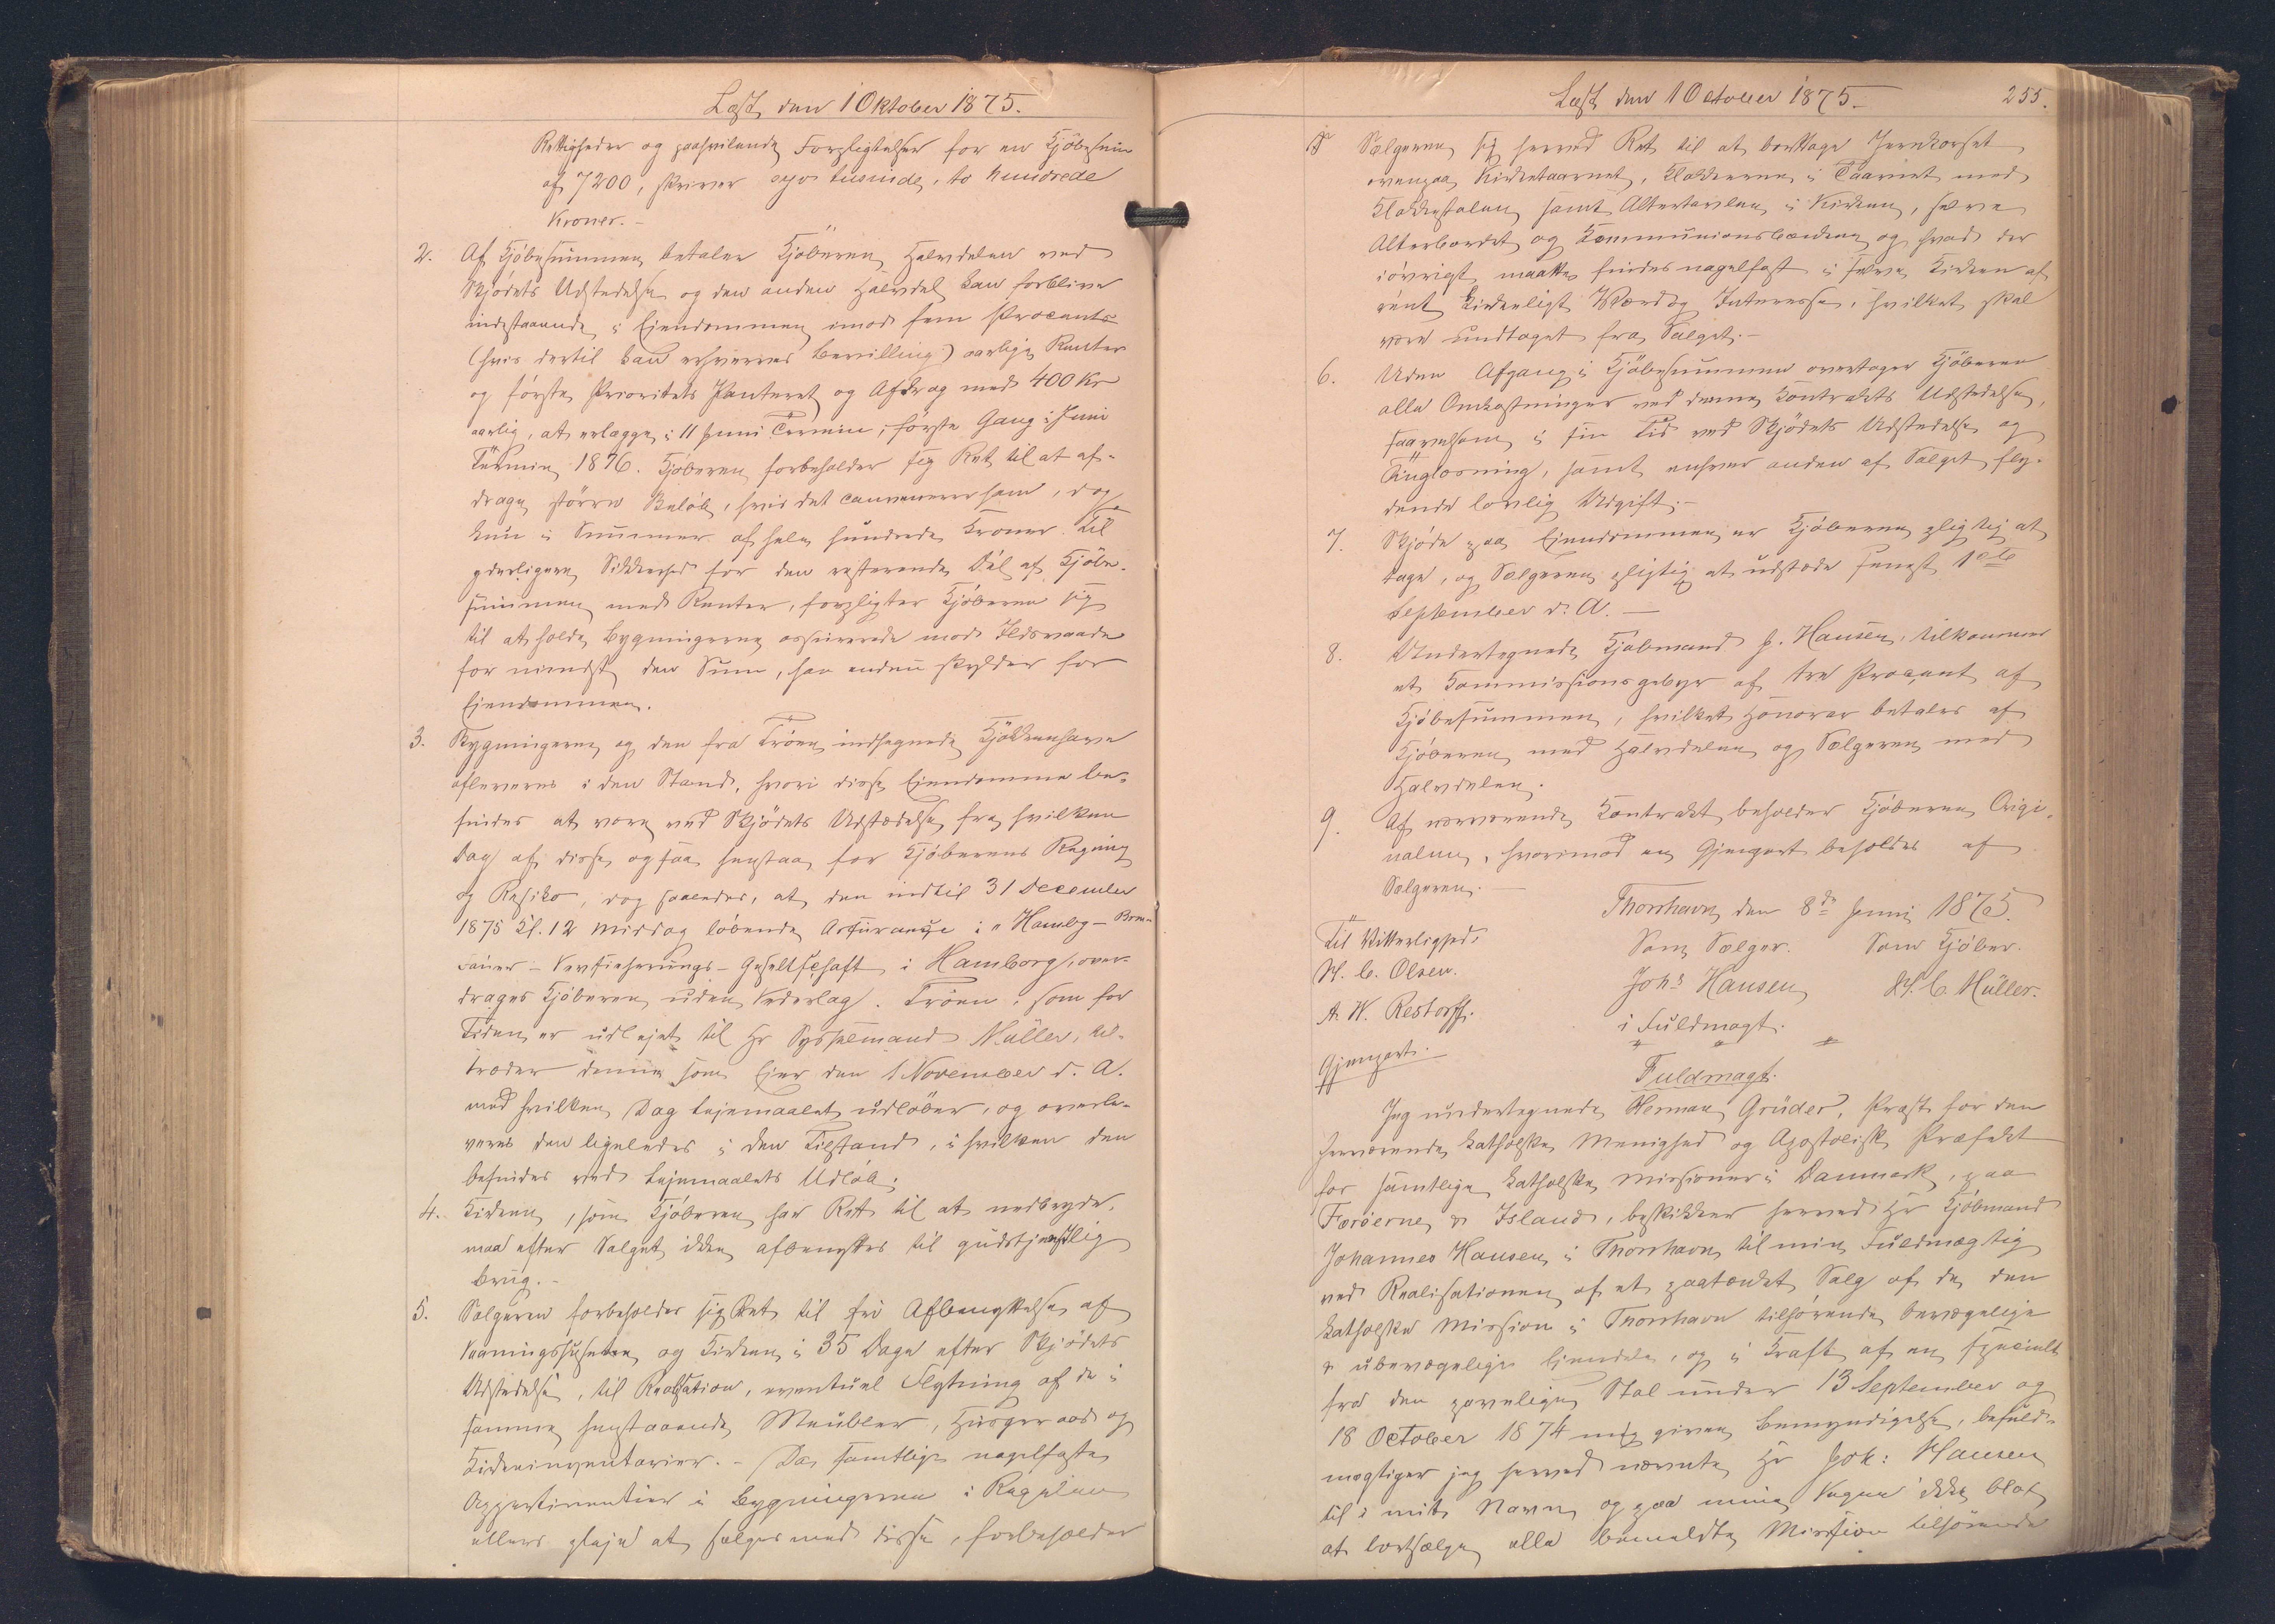 Læst den 1 Oktober 1875.
Rettigheder og paahvilende Forpligtelser for en Kjöbesum
af 7200, skriver syv tusinde, to hundrede
Kroner.-
2. Af Kjöbesummen betaler Kjöberen Halvdelen ved
Skjödets Udstedelse og den anden Halvdel kan forblive
indestaaende i Ejendommen imod fem Procents
(hvis dertil kan erhverves Bevilling) aarlige Renter
og förste Prioritets Panteret og Afdrag med 400 Kr
aarlig, at erlægge i 11 Juni Termin, förste Gang i Juni
Termin 1876. Kjöberen forbeholder sig Ret til at af-
drage större Belöb, hvis det convenerer ham, dog
kun i Summer af hele hundrede Kroner. Til
yderligere Sikkerhed for den resterende Del af Kjöbe-
summen med Renter, forpligter Kjöberen sig
til at holde Bygningerne assurerede mod Ildsvaade
for mindst den Sum, han endnu skylder for
Ejendommen.
3. Bygningerne og den fra Tröen indhegnede Kjökkenhave
afleveres i den Stand, hvori disse Ejendomme be-
findes at være ved Skjödets Udstædelse fra hvilken
Dag af disse ogsaa henstaa for Kjöberens Regning
og Resiko, dog saaledes, at den indtil 31 December
1875 Kl. 12 Middag löbende Assurance i "Hamby - Brem-
enser - Versicherungs - Gesellschaft i Hamborg, over-
drages Kjöberen uden Vederlag. Tröen, som for
Tiden er udlejet til Hr Sysselmand Müller, til-
træder denne som Ejer den 1 November d. A.
med hvilken Dag Lejemaalet udlöber, og overle-
veres den ligeledes i den Tilstand, i hvilken den
befindes ved Lejemaalets Udlöb.
4. Kirken, som Kjöberen har Ret til at nedbryde,
maa efter Salget ikke afbenyttes til gudstjenstlig
Brug.-
5. Sælgeren forbeholder sig Ret til fri Afbenyttelse af
Vaaningshuset og Kirken i 35 Dage efter Skjödets
Udstedelse, til Realisation, eventuel Flytning af de i
samme henstaaende Meubler, Husgeraad og
Kirkeinventarier. - Da samtlige nagelfaste
Appertinentier i Bygningerne i Reglen
ellers pleje at sælges med disse, forbeholder
Læst den 1 October 1875.-
255.
Sælgeren sig herved Ret til at borttage Jernkorset
ovenpaa Kirketaarnet, Klokkerne i Taarnet med
Klokkestolen samt Altertavlen i Kirken, selve
Alterbordet og Kommunionsbænken og hvad der
iövrigt maatte findes nagelfast i selve Kirken af
rent kirkeligt Værd og Interesse, hvilket skal
være undtaget fra Salget.-
6. Uden Afgang i Kjöbesummen overtager Kjöberen
alle Omkostninger ved denne Kontrakts Udstedelse,
saavelsom i sin Tid ved Skjödets Udstedelse og
Tinglæsning, samt enhver anden af Salget fly-
dende lovlig Udgift.-
7. Skjöde paa Ejendommen er Kjöberen pligtig at
tage, og Sælgeren pligtig at udstede senest 1ste
September d. A. -
8. Undertegnede Kjöbmand J. Hansen, tilkommer
et Kommissionsgebyr af tre Procent af
Kjöbesummen, hvilket Honorar betales af
Kjöberen med Halvdelen og Sælgeren med
Halvdelen.
9. Af nærværende Kontrakt beholder Kjöberen Origi-
nalen, hvorimod en Gjenpart beholdes af
Sælgeren.-
Thorshavn den 8de Juni 1875.
Til Vitterlighed:
Som Sælger. Som Kjöber.
H. C. Olsen.
Johs Hansen H. C. Müller.
A. W. Restorff.
i Fuldmagt.
Gjenpart.
Fuldmagt.
Jeg undertegnede Herman Grüder, Præst for den
herværende katholske Menighed og Apostolisk Præfekt
for samtlige katholske Missioner i Danmark, paa
Færöerne & Island, beskikker herved Hr Kjöbmand
Johannes Hansen i Thorshavn til min Fuldmægtig
ved Realisationen af et paatænkt Salg af de den
katholske Mission i Thorshavn tilhörende bevægelige
& ubevægelige Ejendele, og i Kraft af en specielt
fra den pavelige Stol under 13 September og
18 October 1874 mig given Bemyndigelse, befuld-
mægtiger jeg herved nævnte Hr Joh: Hansen
til i mit Navn og paa mine Vegne ikke blot
at bortsælge alle bemeldte Mission tilhörende